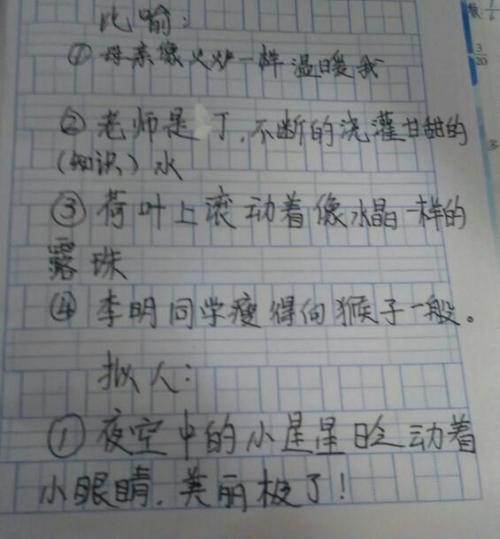 比喻:
① 母亲像火炉一样温暖我
② 老师是 丁,不断的浇灌甘甜的
(知识)水
③ 荷叶上滚动着像水晶一样的
露珠
④ 李明同学瘦得向猴子一般。
拟人:
① 夜空中的小星星眨动着
小眼睛,美丽极了!
3/20